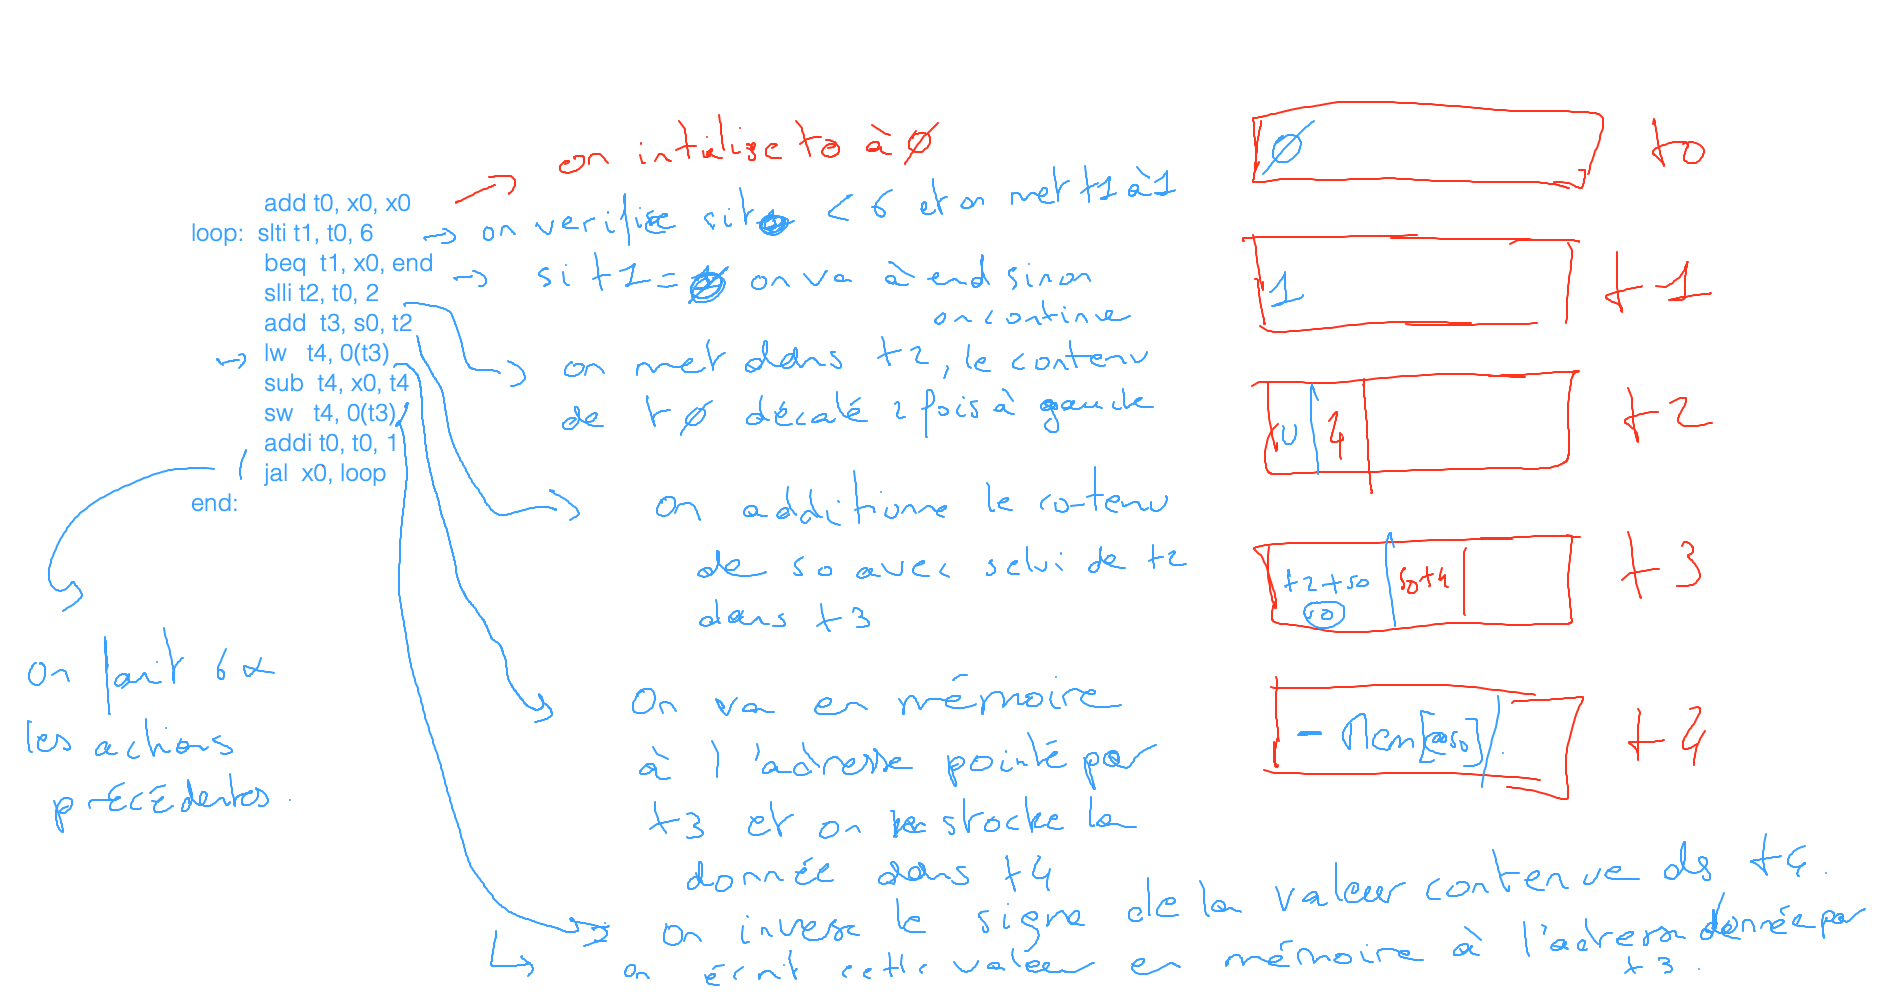 add t0, x0, x0
loop: slti t1, t0, 6
beq t1, x0, end
slli t2, t0, 2
add t3, s0, t2
lw t4, 0(t3)
sub t4, x0, t4
sw t4, 0(t3)
addi t0, t0, 1
jal x0, loop
end:
on intialise t0 à 0
on verifie si t0 < 6 et on met t1 à 1
si t1 = 0 on va à end sinon
on continue
on met dans t2, le contenu
de t0 décalé 2 fois à gauche
On additionne le contenu
de s0 avec selui de t2
dans t3
On va en mémoire
à l'adresse pointé par
t3 et on stocke la
donnée dans t4
on inverse le signe de la valeur contenue ds t4.
on écrit cette valeur en mémoire à l'adresse donnée par
t3.
On fait 6x
les actions
précédentes.
0
t0
1
t1
4
t2
t2+s0
s0
s0+4
t3
- Mem[@s0]
t4